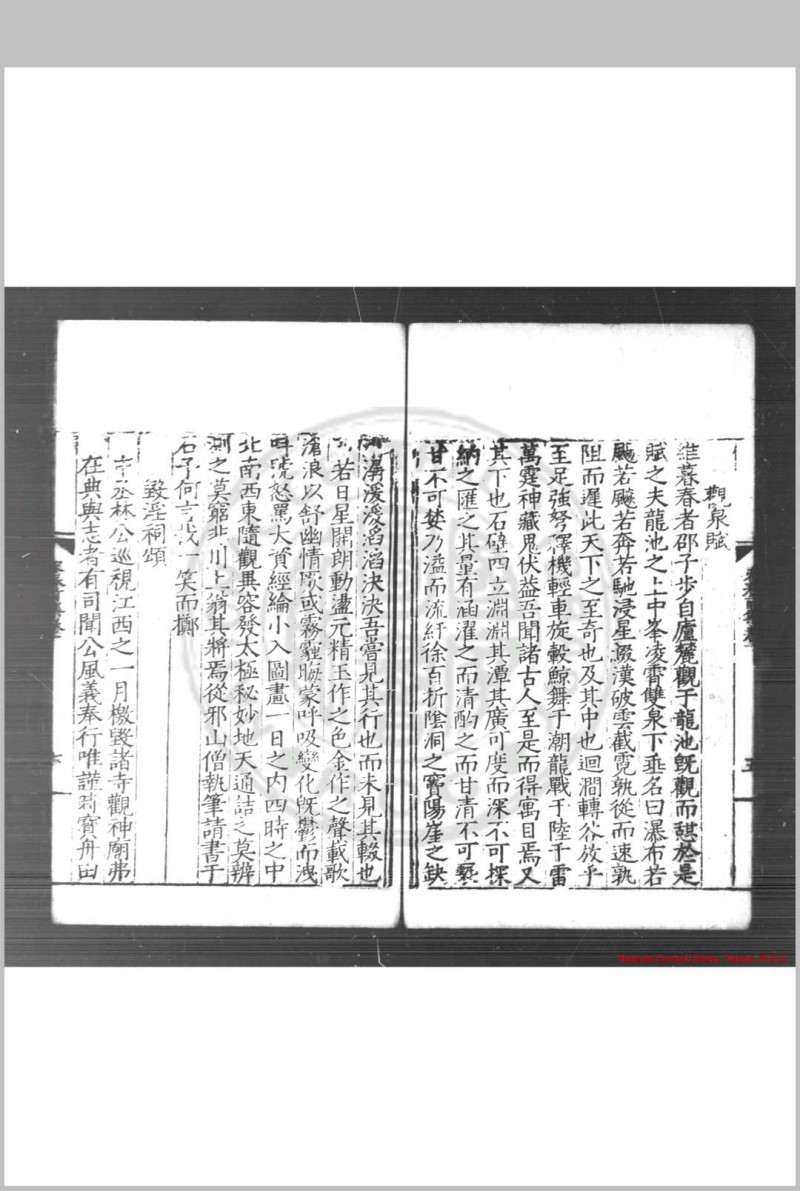 觀泉賦
維暮春者邵子步自廬麓觀于龍池既觀而憩於是
賦之夫龍池之上中峯凌霄雙泉下垂名曰瀑布若
飈若飈若奔若馳浸星綴漢破雲截霓孰從而速孰
阻而遲此天下之至奇也及其中也迴澗轉谷放乎
至足強弩釋機輕車旋轂鯨舞于潮龍戰于陸千雷
萬霆神藏鬼伏益吾聞諸古人至是而得寓目焉又
其下也石壁四立淵淵其潭其廣可度而深不可探
納之匯之其量有涵濯之而清酌之而甘清不可褻
甘不可婪乃溢而流紆徐百折陰洞之竇陽崖之缺
潺湲滔滔決決吾嘗見其行也而未見其輟也
若日星開朗動盪元精玉作之色金作之聲載歌
滄浪以舒幽情厥或霧霾晦蒙呼吸變化既鬱而洩
呼號怒罵大資經綸小入圖畫一日之內四時之中
北南西東隨觀異容發太極秘妙地天通詰之莫辨
測之莫窮非川上翁其將焉從邪山僧執筆請書于
石予何言哉一笑而擲
毀淫祠頌
中丞林公巡視江西之一月檄毀諸寺觀神廟弗
在典與志者有司聞公風義奉行唯謹時寶舟出